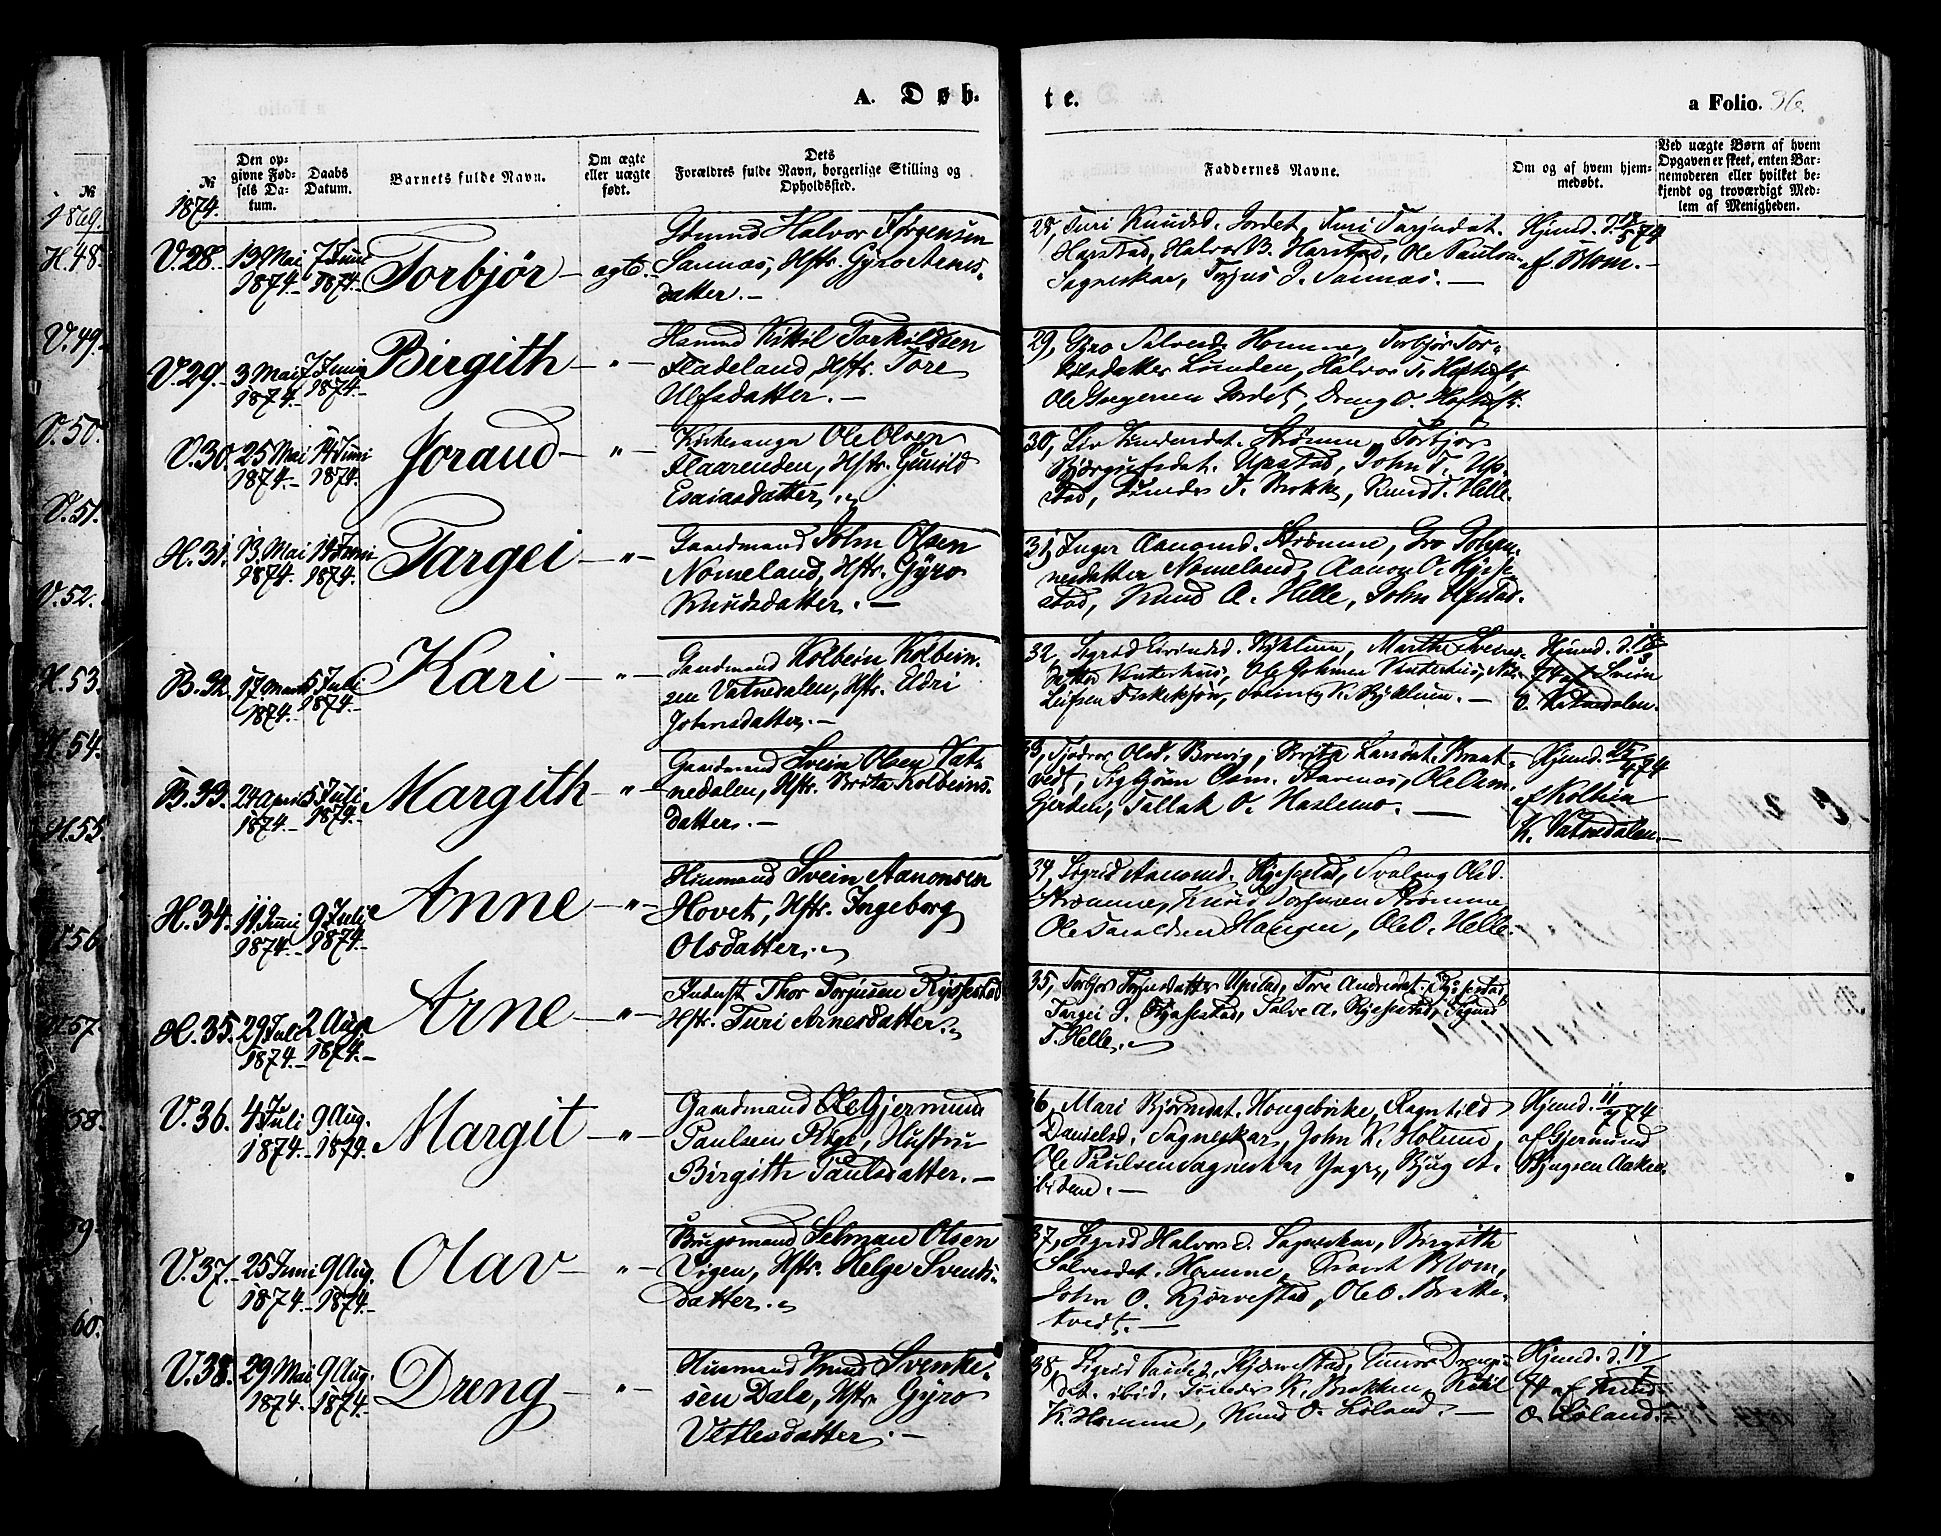 A. Døb-
te.
a Folio. 36.
№
1874.
Den op-
givne Fød-
sels Da-
tum.
Daabs
Datum.
Barnets fulde Navn.
Om ægte
eller uægte
født.
Dets
Forældres fulde Navn, borgerlige Stilling og
Opholdssted.
Faddernes Navne.
Om og af hvem hjem-
medøbt.
Ved uægte Børn af hvem
Opgaven er skeet, enten Bar-
nemoderen eller hvilket be-
kjendt og troværdigt Med-
lem af Menigheden.
№
1869.
H. 48.
V. 49.
V. 50.
V. 51.
V. 52.
H. 53.
H. 54.
H. 55.
56.
57.
58.
59.
60.
V. 28. 13 Mai 1874.- 7 Juni 1874.- Torbjør - ægte.-
Halvor Jørgensen
Sannæs, Hstr. Gyro
datter. -
28, Turi Knudsd. Jordet, Turi Tarjeidat.
Harstad, Halvor B. Harstad, Ole Paulsen
Sagneskar, Tarjus J. Sannæs. -
Hjemd. d. 18/5 74
af Blom. -
V. 29. 3 Mai 1874.- 7 Juni 1874.- Birgith - " -
Kittil Torkildsen
Fladeland, Hstr. Tore
Ulfsdatter. -
29, Gyro Salvesd. Homme, Torbjør Tor-
kilsdatter Lunden, Halvor T. Heftuft.
Ole Jordet, Dreng O. Heftuft.
V. 30. 25 Mai 1874.- 14 Juni 1874.- Joraud - " -
Kirkesanger Ole Olsen
Flaarenden, Hstr. Gunild
Esaiasdatter.
30, Liv Strømme, Torbjør
Bjørgulfsdat. Upstad, John T. Up-
stad, Gunder T. Brokke, Knud T. Helle.
H. 31. 13 Mai 1874.- 14 Juni 1874.- Targei - " -
Gaardmand John Olsen
Nomeland, Hstr. Gyro
Knudsdatter. -
31, Inger Aanonsd. Strømme, Gro Johan-
nesdatter Nomeland, Aanon O. Rysse-
stad, Knud A. Helle, John Upstad.
B. 32. 17 Marts 1874.- 5 Juli 1874.- Kari - " -
Gaardmand Kolbein Kolbein-
sen Vatnedalen, Hstr. Eldri
Johnsdatter. -
32, Sigrid Byklum, Marthe Svens-
datter Vinterhus, Ole Johnsen Vinterhus,
Leifsen Fiskekjøn, K. Byklum. -
Hjemd. d. 18/3
74 af Svein
O. Vatnedalen.
B. 33. 24 April 1874.- 5 Juli 1874.- Margith - " -
Gaardmand Svein Olsen Vat-
nedalen, Hstr. Brita Kolbeins-
datter. -
33, Tjodvor Olsd. Breivig, Brita Larsdat. Braat-
vedt, Sigbjørn Stavenæs, Ole
Gjerden, Tallak O. Haslemo. -
Hjemd. 25/4 74
af Kolbein
K. Vatnedalen. -
H. 34. 11 Juni 1874.- 9 Juli 1874.- Anne - " -
Husmand Svein Aanonsen
Hovet, Hstr. Ingeborg
Olsdatter.
34, Sigrid Aanonsd. Ryssestad, Svalaug Olsd.
Strømme, Knud Strømme
Ole Haugen, Ole O. Helle.
H. 35. 29 Juli 1874.- 2 Aug. 1874.- Arne - " -
Inderst Thor Torjusen Ryssestad
Hstr. Turi Arnesdatter.
35, Torbjør Upstad, Tore Andrisdat. Ryssestad,
Targei J. Ryssestad, Salve A. Ryssestad, Sigurd
T. Helle.
V. 36. 4 Juli 1874.- 9 Aug. 1874.- Margit - " -
Gaardmand Ole Gjermund
Paulsen Rige, Hustru
Birgith Paulsdatter. -
36, Mari Bjørnsdat. Hougebirke, Ragnhild
Danielsd. Sagneskar, John K. Holme,
Ole Paulsen Sagneskar Yngre, Bjug A.
ibidem. -
Hjemd. 11/7 74
af Gjermund
Bjugsen Aakre.
V. 37. 25 Juni 1874.- 9 Aug. 1874.- Olav - " -
Brugsmand Selmau Olsen
Vigen, Hstr. Helge Svends-
datter.
37, Sigrid Halvorsd. Sagneskar, Birgith
Salvesdat. Homme, Blom,
John O. Kjørvestad, Ole O. Brokke-
tvedt. -
V. 38. 29 Mai 1874.- 9 Aug. 1874.- Dreng - " -
Husmand Knud Svenke-
sen Dale, Hstr. Gyro
Vetlesdatter. -
38, Sigrid Kjørvestad, Gunvor Drengs-
dat. ibid. Gunder K. Brokken, Kittil
K. Homme, Knud O. Løland. -
Hjemd. d. 17/7
74 af Knud
O. Løland.